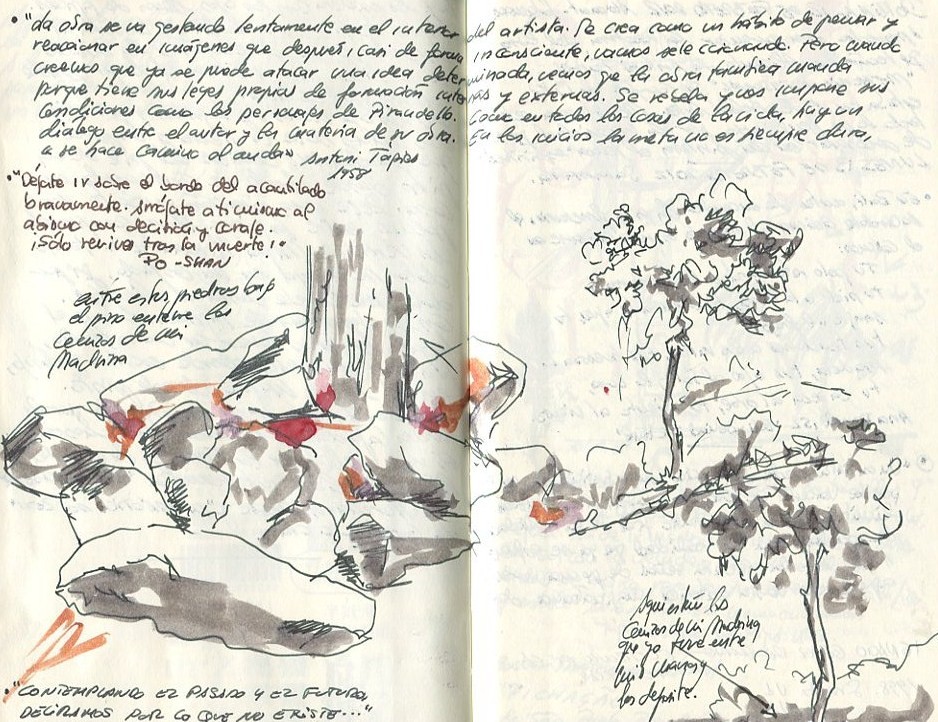 "La obra se va gestando lentamente en el interior del artista. Se crea como un hábito de pensar y
reaccionar en imágenes que después, casi de forma inconsciente, vamos seleccionando. Pero cuando
creemos que ya se puede atacar una idea determinada, vemos que la obra también manda
porque tiene sus leyes propias de formación internas y externas. Se rebela y nos impone sus
condiciones como los personajes de Pirandello. Como en todas las cosas de la vida, hay un
diálogo entre el autor y la materia de su obra. En los inicios la meta no es siempre clara,
se hace camino al andar" Antoni Tàpies
1958
"Déjate ir sobre el borde del acantilado
bravamente. Arrójate a ti mismo al
abismo con decisión y coraje.
¡Sólo revives tras la muerte!"
PO-SHAN
entre estas piedras bajo
el pino estuve las
cenizas de mi
Madrina
Aquí están las
cenizas de mi Madrina
que yo tuve entre
mis manos y
las deposité.
"CONTEMPLANDO EL PASADO Y EL FUTURO
DELIRAMOS POR LO QUE NO EXISTE..."